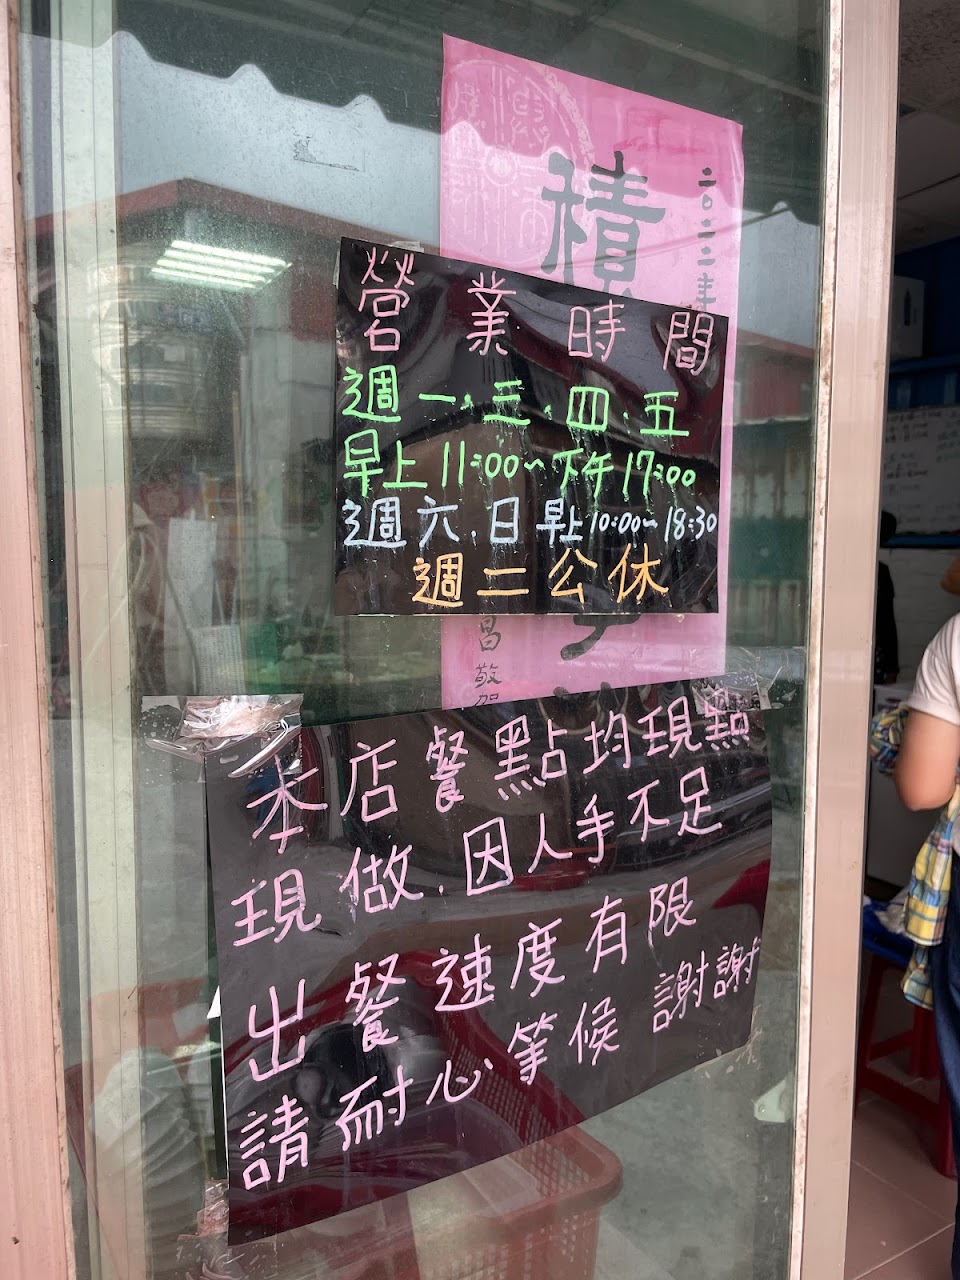 積
二〇二二年
營業時間
週一.三.四.五
早上11:00~下午17:00
週六.日早上10:00~18:30
週二公休
昌敬賀
本店餐點均現點
現做.因人手不足
出餐速度有限
請耐心等候 謝謝